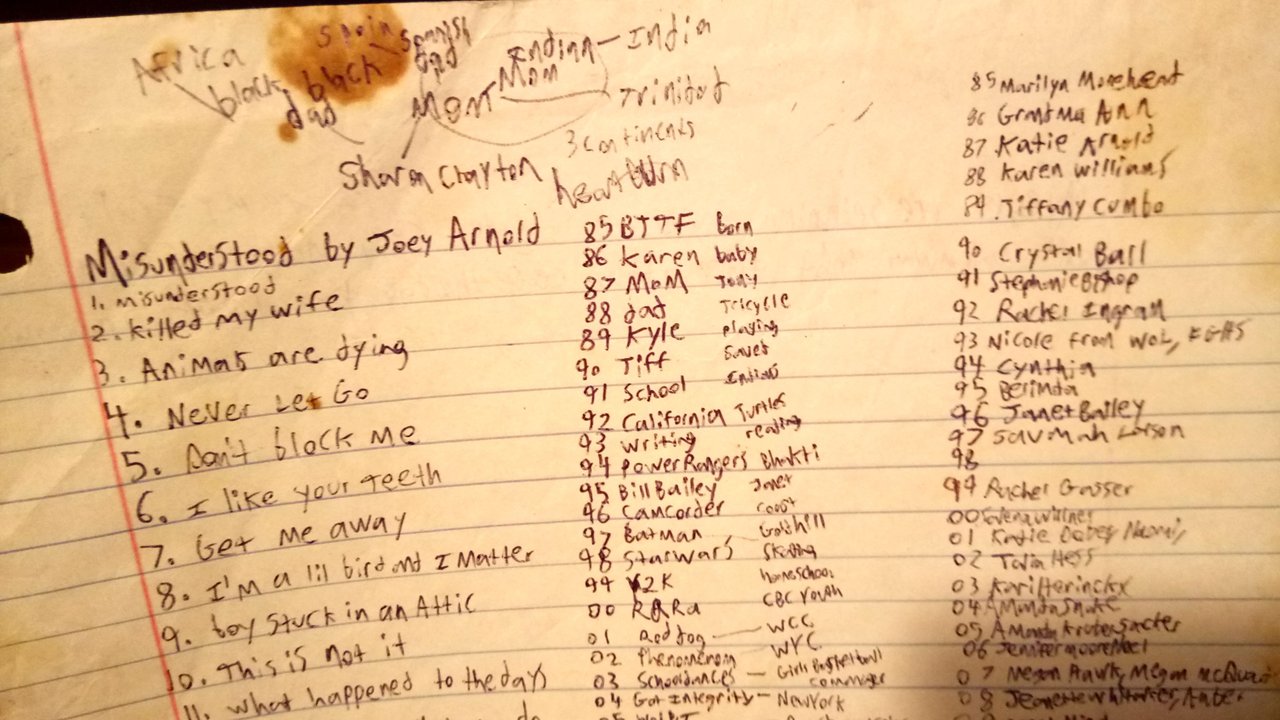 Africa
black
dad
spain
black
spanish
dad
Indian - India
Mom
Mom
Trinidad
3 continents
heartburn
Sharon Crayton
Misunderstood by Joey Arnold
1. misunderstood
2. killed my wife
3. Animals are dying
4. Never Let Go
5. Don't block me
6. I like your teeth
7. Get me away
8. I'm a lil bird and I Matter
9. boy stuck in an Attic
10. This is not it
11. what happened to the days
85 BTTF Born
86 Karen baby
87 MoM Tony
88 dad Tricycle
89 Kyle playing
90 Tiff saved
91 School
92 California Turtles
93 writing reading
94 PowerRangers Bhakti
95 Bill Bailey Janet
96 Camcorder coost
97 Batman Goldhill
98 Starwars skating
99 Y2K homeschool
00 RQRa CBC Youth
01 Red Dog — WCC
02 Phenomenom WYC
03 Schooldances — Girls Basketball
04 Got Integrity — New York
85 Marilyn Morehead
86 Grandma Ann
87 Katie Arnold
88 Karen Williams
89 Tiffany Cumbo
90 Crystal Ball
91 Stephanie Bishop
92 Rachel Ingram
93 Nicole from WOL, EGHS
94 Cynthia
95 Berinda
96 Janet Bailey
97 Savannah Larson
98
99 Rachel Gasser
00
01 Katie Naomi,
02 Talia Hess
03 Kari Herinckx
04 Amanda
05 Amanda
06 Jennifer
07 Megan Hawk, Megan
08 Jeanette